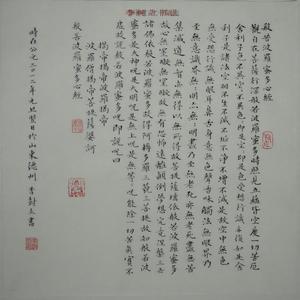 般若波羅蜜多心經
觀自在菩薩行深般若波羅蜜多時照見五蘊皆空度一切苦厄
舍利子色不異空空不異色色即是空空即是色受想行識亦復如是舍
利子是諸法空相不生不滅不垢不淨不增不減是故空中無色
無受想行識無眼耳鼻舌身意無色聲香味觸法無眼界乃
至無意識界無無明亦無無明盡乃至無老死亦無老死盡無苦
集滅道無智亦無得以無所得故菩提薩埵依般若波羅蜜多
故心無罣礙無罣礙故無有恐怖遠離顛倒夢想究竟涅槃三世
諸佛依般若波羅蜜多故得阿耨多羅三藐三菩提故知般若波羅
蜜多是大神咒是大明咒是無上咒是無等等咒能除一切苦真實不
虛故說般若波羅蜜多咒即說咒曰
揭帝揭帝波羅揭帝
波羅僧揭帝菩提薩婆訶
般若波羅蜜多心經
時在公元二〇一二年元旦於山東德州李封玉書